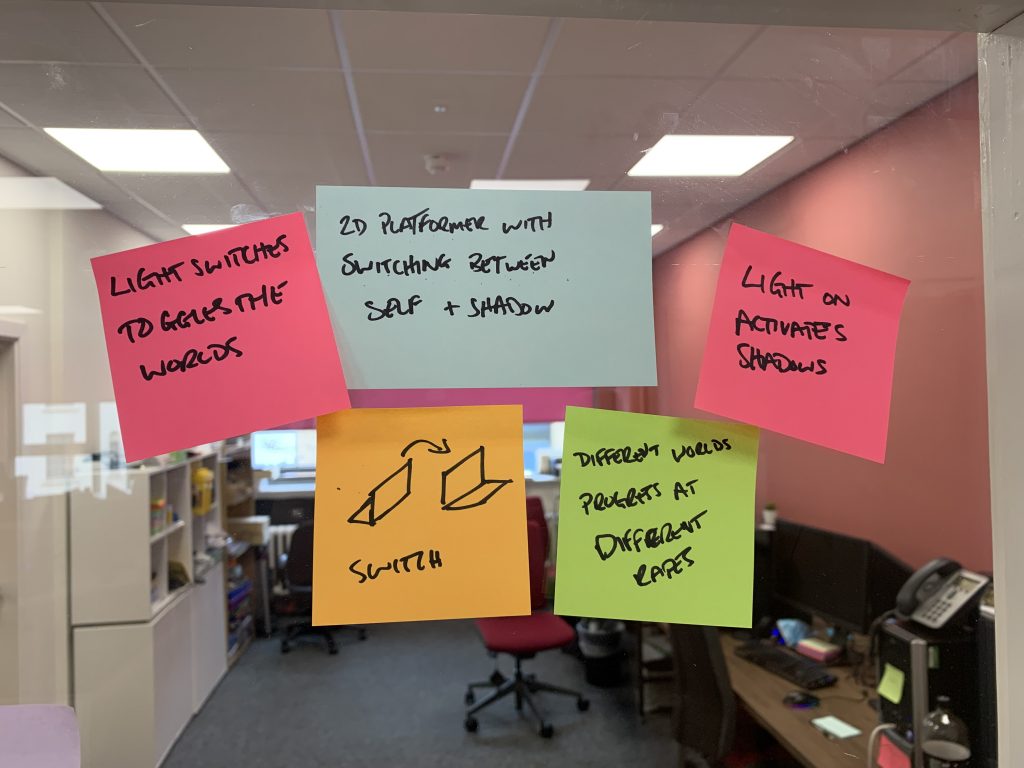 LIGHT SWITCHES
TOGGLES THE
WORLDS
2D PLATFORMER WITH
SWITCHING BETWEEN
SELF + SHADOW
LIGHT ON
ACTIVATES
SHADOWS
SWITCH
DIFFERENT WORLDS
PROGRESS AT
DIFFERENT
RATES